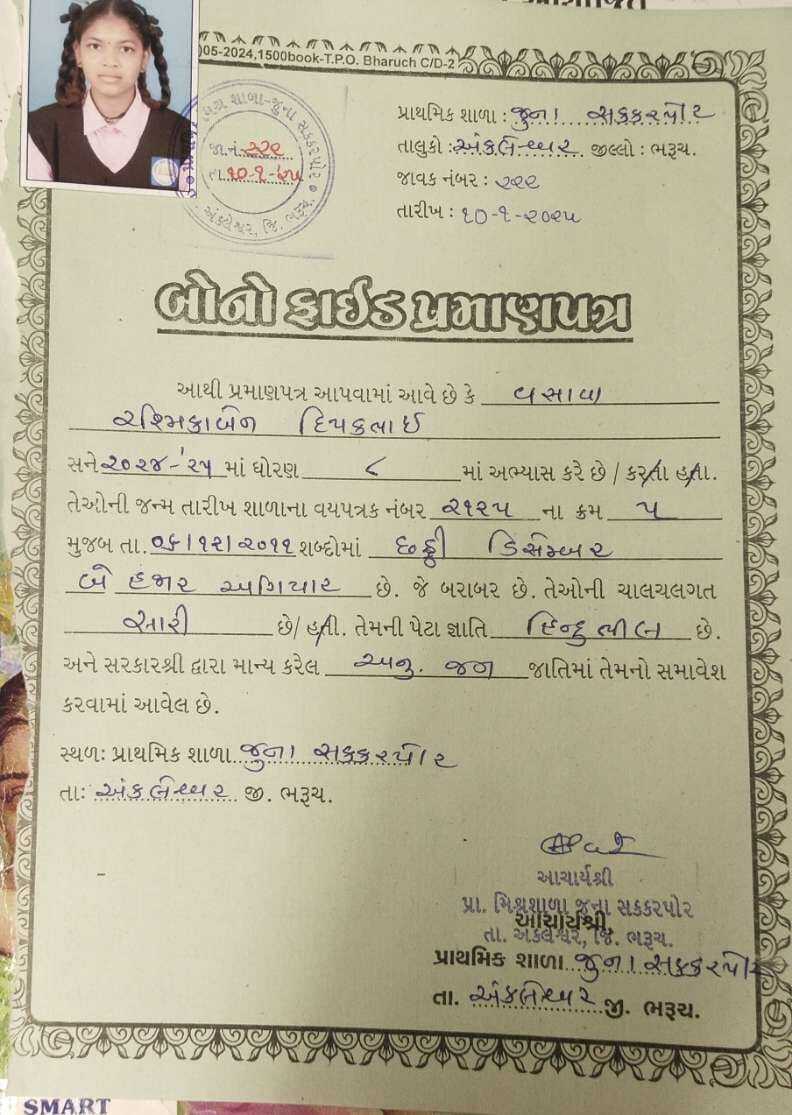 05-2024,1500book-T.P.O. Bharuch C/D-2
પ્રાથમિક શાળા : જુના સક્કરપોર
તાલુકો : અંકલેશ્વર જીલ્લો : ભરૂચ.
જા.નં. ૨૨૯
તા. ૧૦-૧-૨૫
જાવક નંબર : ૨૨૯
તારીખ : ૧૦-૧-૨૦૨૫
બોનોફાઈડ પ્રમાણપત્ર
આથી પ્રમાણપત્ર આપવામાં આવે છે કે વસાવા
રશ્મિકાબેન દિપકભાઈ
સને ૨૦૨૪-'૨૫ માં ધોરણ ૮ માં અભ્યાસ કરે છે / કરતા હતા.
તેઓની જન્મ તારીખ શાળાના વયપત્રક નંબર ૨૧૨૫ ના ક્રમ ૫
મુજબ તા. ૦૬/૧૨/૨૦૧૧ શબ્દોમાં છઠ્ઠી ડિસેમ્બર
બે હજાર અગિયાર છે. જે બરાબર છે. તેઓની ચાલચલગત
સારી છે/ હતી. તેમની પેટા જ્ઞાતિ હિન્દુ ભીલ છે.
અને સરકારશ્રી દ્વારા માન્ય કરેલ અનુ. જન જાતિમાં તેમનો સમાવેશ
કરવામાં આવેલ છે.
સ્થળઃ પ્રાથમિક શાળા જુના સક્કરપોર
તાઃ અંકલેશ્વર જી. ભરૂચ.
આચાર્યશ્રી
પ્રા. મિશ્રશાળા જુના સક્કરપોર
આચાર્યશ્રી,
તા. અંકલેશ્વર, જિ. ભરૂચ.
પ્રાથમિક શાળા જુના સક્કરપોર
તા. અંકલેશ્વર જી. ભરૂચ.
SMART